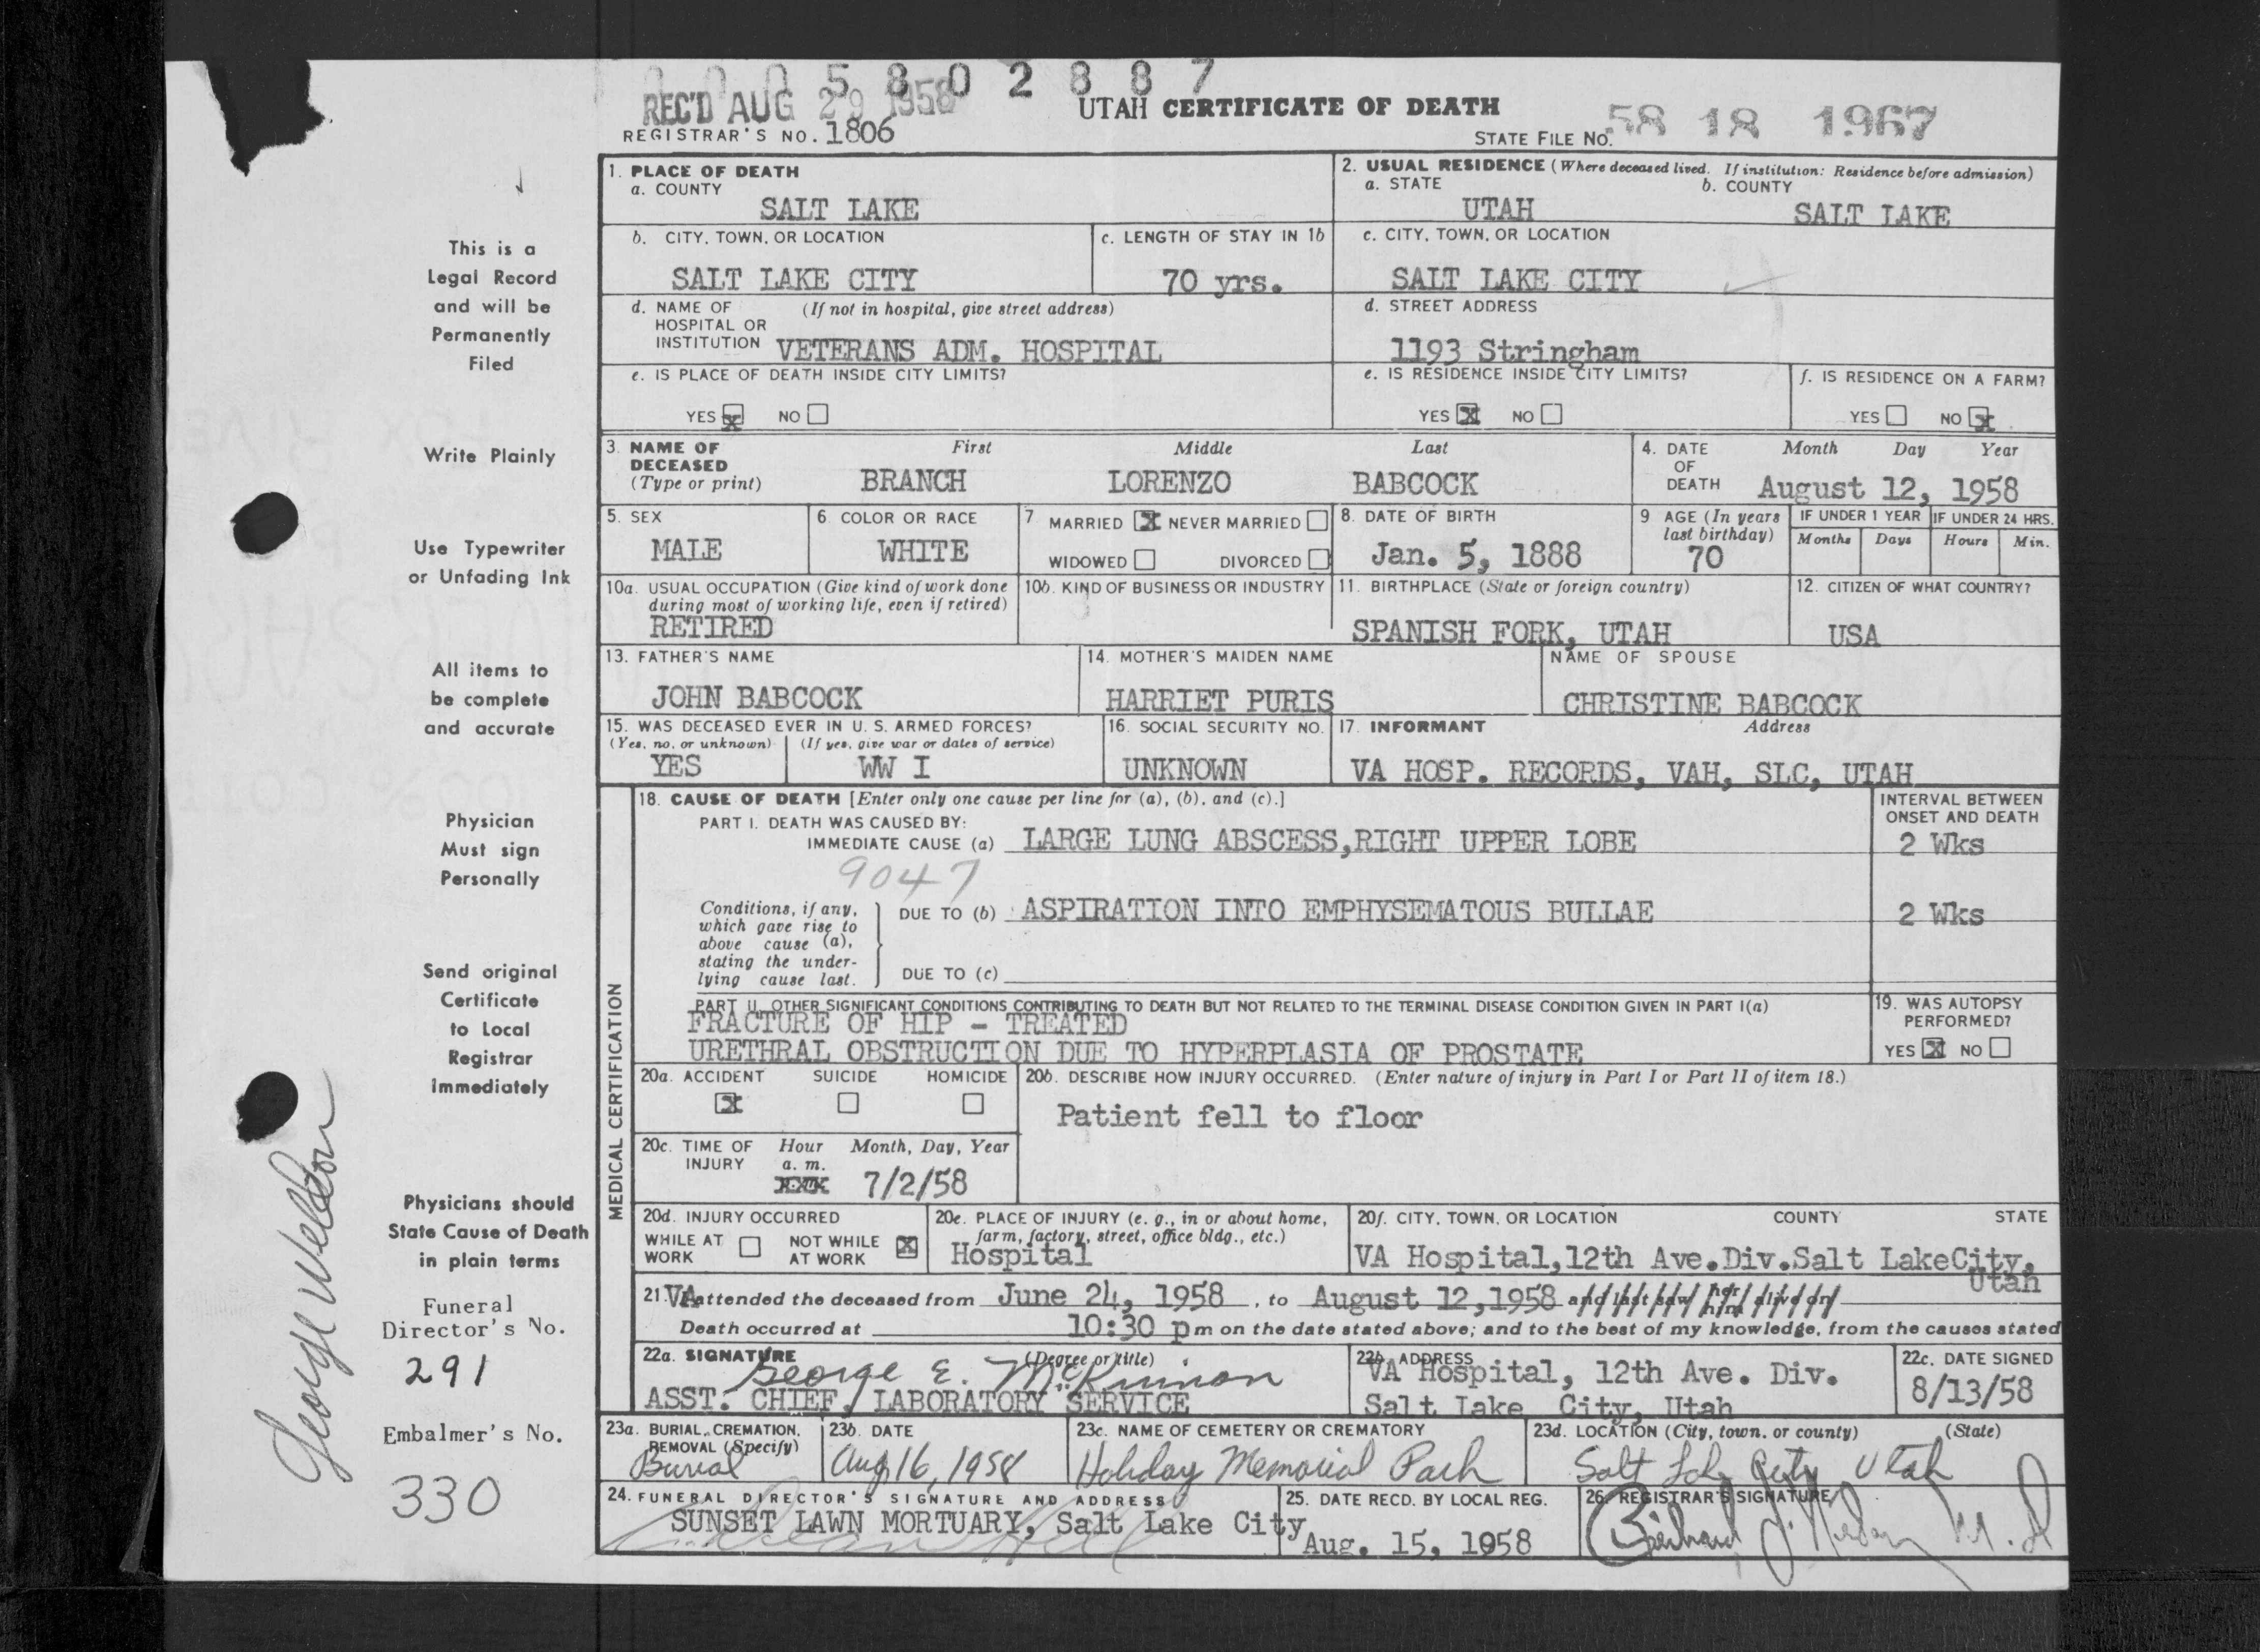 0005802887
REC'D AUG 29 1958
UTAH CERTIFICATE OF DEATH
REGISTRAR'S NO. 1806
STATE FILE NO. 58 18 1967
1. PLACE OF DEATH
a. COUNTY
SALT LAKE
2. USUAL RESIDENCE (Where deceased lived. If institution: Residence before admission)
a. STATE b. COUNTY
UTAH SALT LAKE
b. CITY, TOWN, OR LOCATION
SALT LAKE CITY
c. LENGTH OF STAY IN 1b
70 yrs.
c. CITY, TOWN, OR LOCATION
SALT LAKE CITY
d. NAME OF (If not in hospital, give street address)
HOSPITAL OR
INSTITUTION VETERANS ADM. HOSPITAL
d. STREET ADDRESS
1193 Stringham
e. IS PLACE OF DEATH INSIDE CITY LIMITS?
YES X NO
e. IS RESIDENCE INSIDE CITY LIMITS?
YES X NO
f. IS RESIDENCE ON A FARM?
YES NO X
3. NAME OF DECEASED (Type or print)
First Middle Last
BRANCH LORENZO BABCOCK
4. DATE OF DEATH
Month Day Year
August 12, 1958
5. SEX
MALE
6. COLOR OR RACE
WHITE
7 MARRIED X NEVER MARRIED
WIDOWED DIVORCED
8. DATE OF BIRTH
Jan. 5, 1888
9 AGE (In years last birthday)
70
IF UNDER 1 YEAR IF UNDER 24 HRS.
Months Days Hours Min.
10a. USUAL OCCUPATION (Give kind of work done
during most of working life, even if retired)
RETIRED
10b. KIND OF BUSINESS OR INDUSTRY
11. BIRTHPLACE (State or foreign country)
SPANISH FORK, UTAH
12. CITIZEN OF WHAT COUNTRY?
USA
13. FATHER'S NAME
JOHN BABCOCK
14. MOTHER'S MAIDEN NAME
HARRIET PURIS
NAME OF SPOUSE
CHRISTINE BABCOCK
15. WAS DECEASED EVER IN U. S. ARMED FORCES?
(Yes, no, or unknown) (If yes, give war or dates of service)
YES WW I
16. SOCIAL SECURITY NO.
UNKNOWN
17. INFORMANT Address
VA HOSP. RECORDS, VAH, SLC, UTAH
MEDICAL CERTIFICATION
18. CAUSE OF DEATH [Enter only one cause per line for (a), (b), and (c).]
INTERVAL BETWEEN
ONSET AND DEATH
PART I. DEATH WAS CAUSED BY:
IMMEDIATE CAUSE (a) LARGE LUNG ABSCESS,RIGHT UPPER LOBE 2 Wks
9047
Conditions, if any,
which gave rise to
above cause (a),
stating the under-
lying cause last.
DUE TO (b) ASPIRATION INTO EMPHYSEMATOUS BULLAE 2 Wks
DUE TO (c)
PART II. OTHER SIGNIFICANT CONDITIONS CONTRIBUTING TO DEATH BUT NOT RELATED TO THE TERMINAL DISEASE CONDITION GIVEN IN PART I(a)
FRACTURE OF HIP - TREATED
URETHRAL OBSTRUCTION DUE TO HYPERPLASIA OF PROSTATE
19. WAS AUTOPSY
PERFORMED?
YES X NO
20a. ACCIDENT SUICIDE HOMICIDE
X
20b. DESCRIBE HOW INJURY OCCURRED. (Enter nature of injury in Part I or Part II of item 18.)
Patient fell to floor
20c. TIME OF INJURY
Hour Month, Day, Year
a. m.
7/2/58
20d. INJURY OCCURRED
WHILE AT WORK NOT WHILE AT WORK X
20e. PLACE OF INJURY (e. g., in or about home,
farm, factory, street, office bldg., etc.)
Hospital
20f. CITY, TOWN, OR LOCATION COUNTY STATE
VA Hospital,12th Ave.Div.Salt LakeCity,
Utah
21. VA attended the deceased from June 24, 1958, to August 12,1958 and last saw her him alive on
Death occurred at 10:30 pm on the date stated above; and to the best of my knowledge, from the causes stated
22a. SIGNATURE (Degree or title)
George E. McKinnon
ASST. CHIEF, LABORATORY SERVICE
22b. ADDRESS
VA Hospital, 12th Ave. Div.
Salt Lake City, Utah
22c. DATE SIGNED
8/13/58
23a. BURIAL, CREMATION,
REMOVAL (Specify)
Burial
23b. DATE
Aug 16, 1958
23c. NAME OF CEMETERY OR CREMATORY
Holiday Memorial Park
23d. LOCATION (City, town, or county) (State)
Salt Lake City Utah
24. FUNERAL DIRECTOR'S SIGNATURE AND ADDRESS
SUNSET LAWN MORTUARY, Salt Lake City
25. DATE RECD. BY LOCAL REG.
Aug. 15, 1958
26. REGISTRAR'S SIGNATURE
M.D
This is a
Legal Record
and will be
Permanently
Filed
Write Plainly
Use Typewriter
or Unfading Ink
All items to
be complete
and accurate
Physician
Must sign
Personally
Send original
Certificate
to Local
Registrar
immediately
Physicians should
State Cause of Death
in plain terms
Funeral
Director's No.
291
Embalmer's No.
330
George